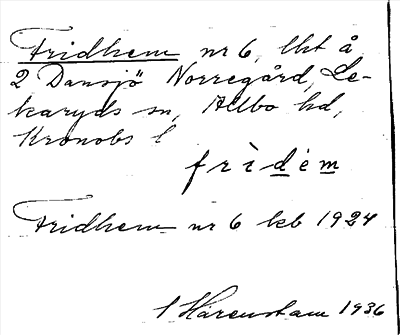 Fridhem nr 6, lht å
2 Dansjö Norregård, Le-
karyds sn, Allbo hd,
Kronobs l
fridem
Fridhem nr 6 kb 1924
Härenstam 1936